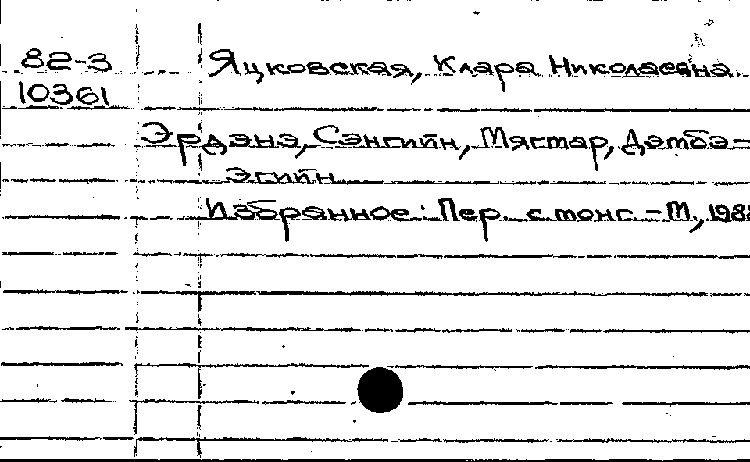 82-3 Яцковская, Клара Николаевна
10361
Эрдэнэ, Сэнгийн, Мягмар, Дэмбэ-
эгийн
Избранное: Пер. с монг. - М., 198